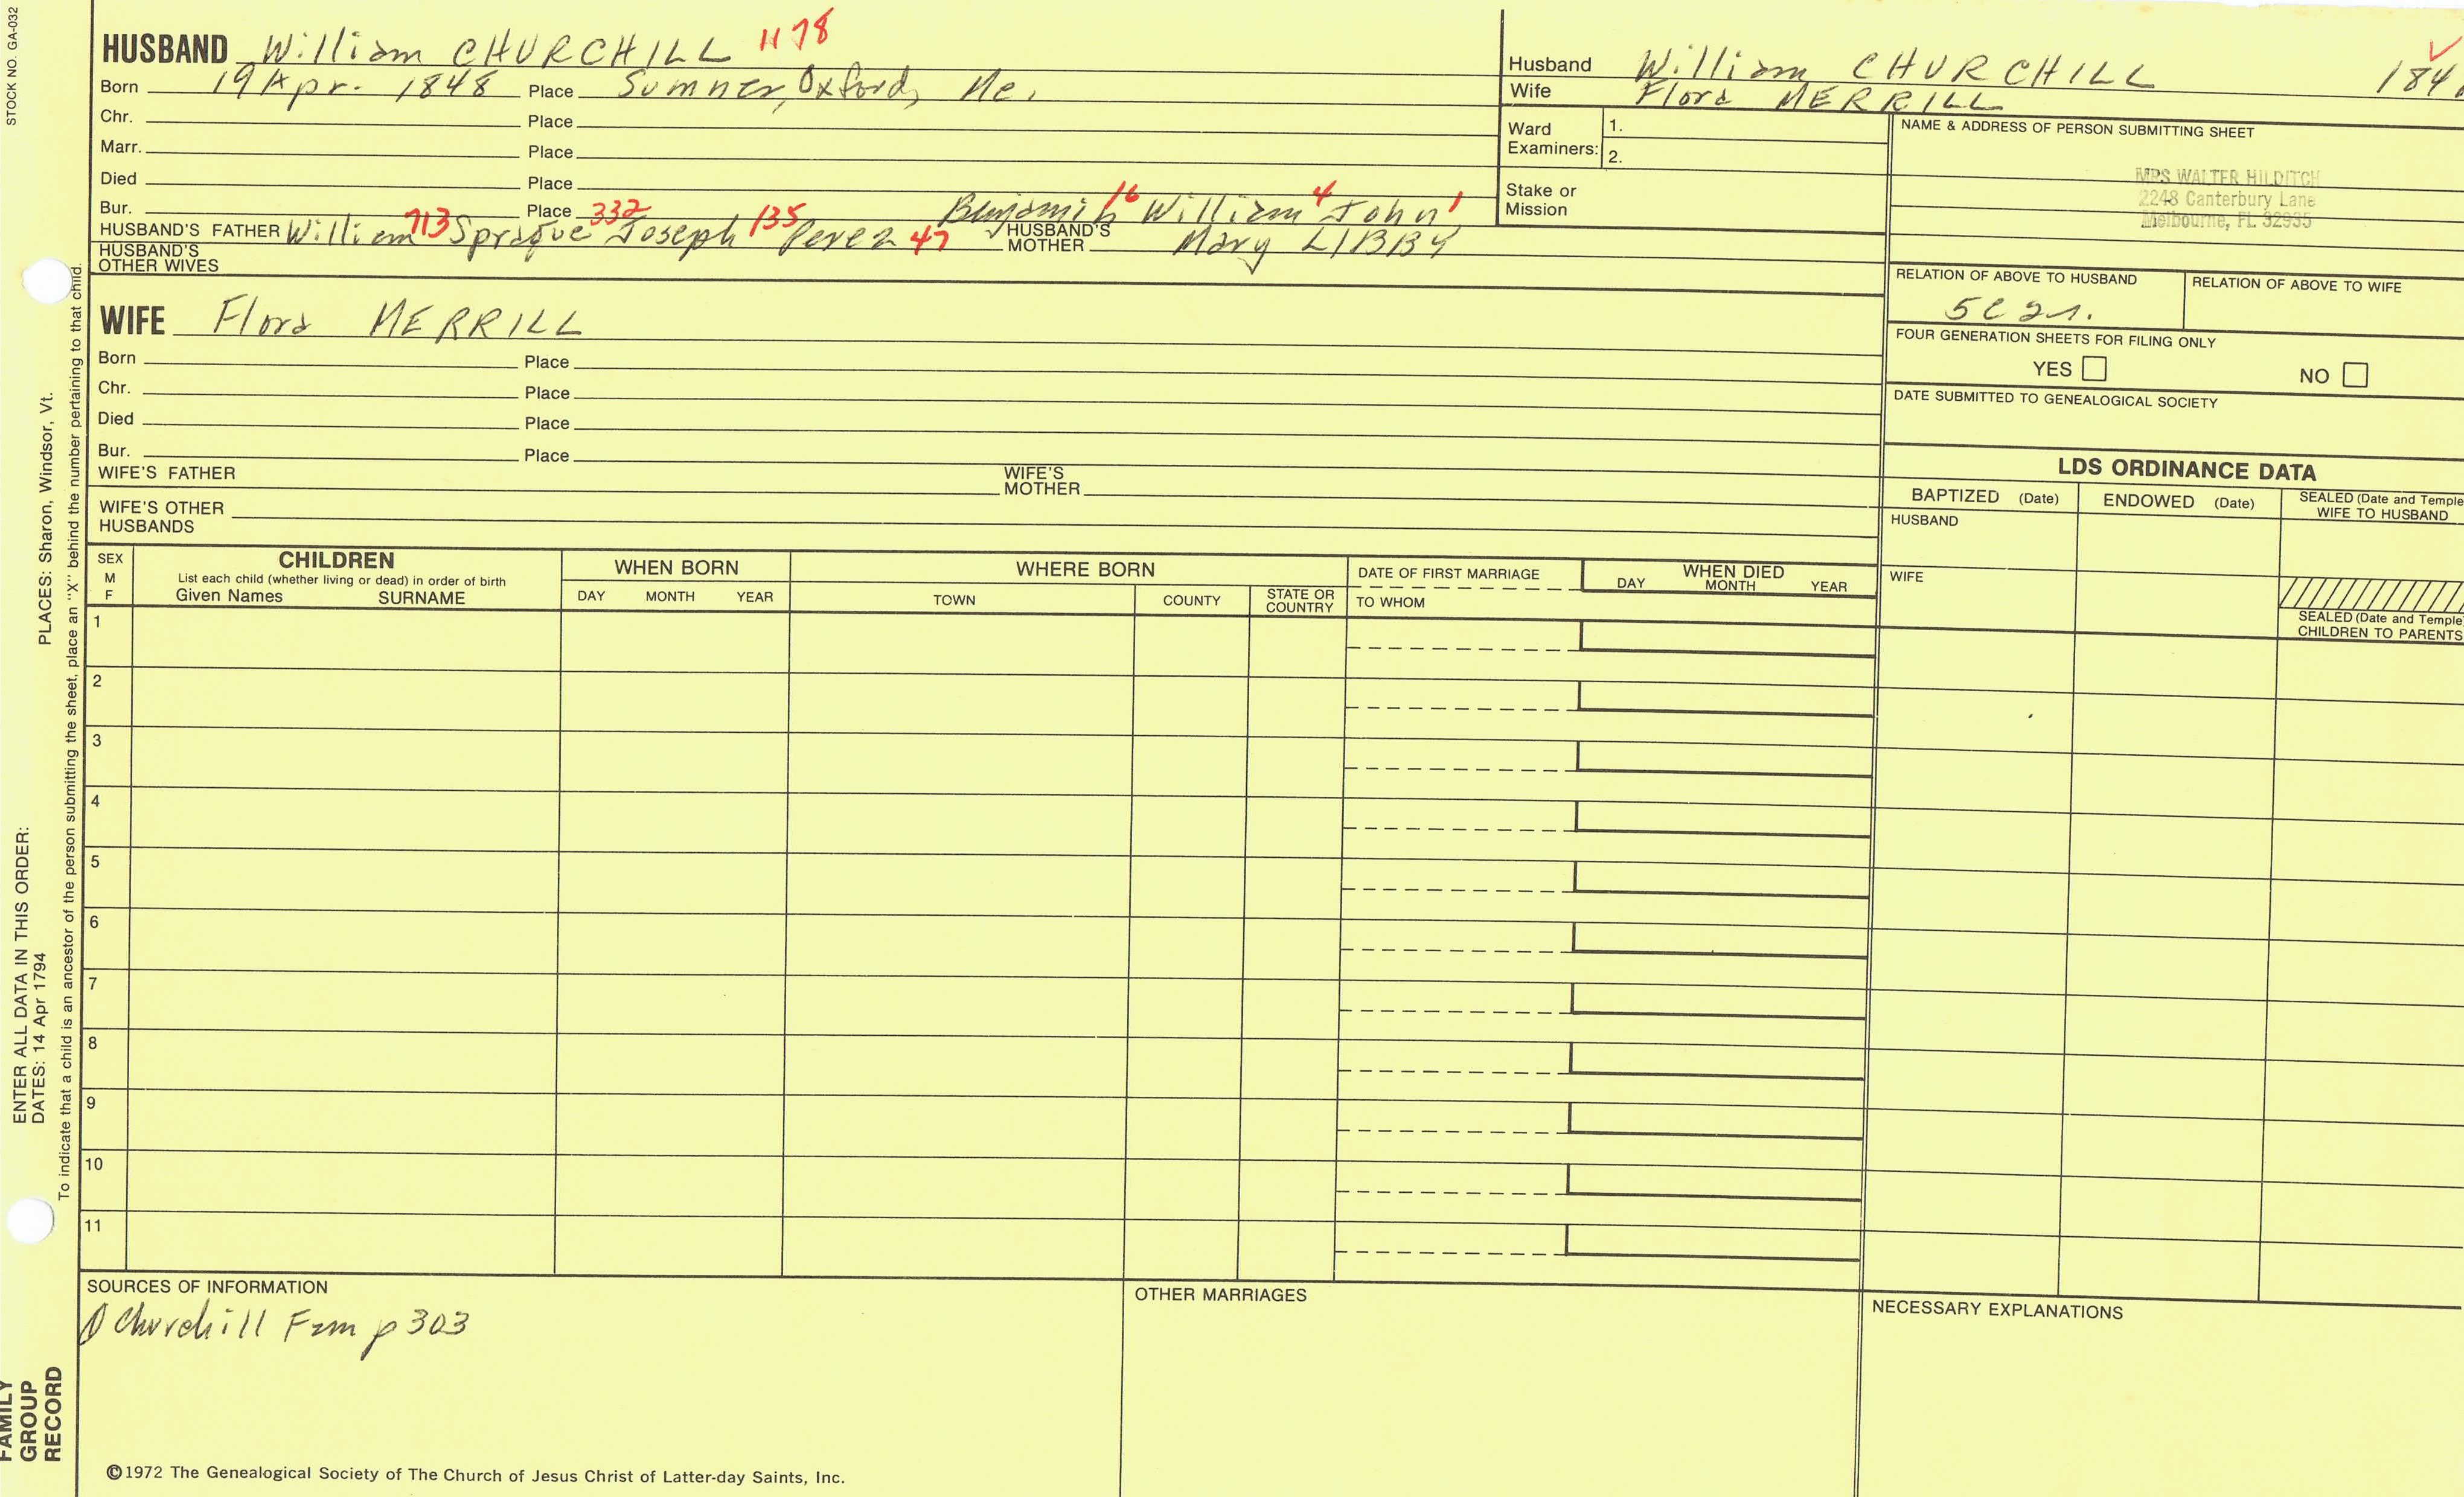 STOCK NO. GA-032
HUSBAND William CHURCHILL 1178
Born 19 Apr. 1848 Place Sumner, Oxford, Me.
Chr. Place
Marr. Place
Died Place
Bur. Place
Benjamin 16 William 4 John 1
HUSBAND'S FATHER William 713 Sprague 332 Joseph 135 Perez 47 HUSBAND'S MOTHER Mary LIBBY
HUSBAND'S OTHER WIVES
WIFE Flora MERRILL
Born Place
Chr. Place
Died Place
Bur. Place
WIFE'S FATHER WIFE'S MOTHER
WIFE'S OTHER HUSBANDS
Husband William CHURCHILL 184
Wife Flora MERRILL
Ward Examiners: 1.
2.
Stake or Mission
NAME & ADDRESS OF PERSON SUBMITTING SHEET
MRS WALTER HILDITCH
2248 Canterbury Lane
Melbourne, FL 32935
RELATION OF ABOVE TO HUSBAND RELATION OF ABOVE TO WIFE
5C 2r.
FOUR GENERATION SHEETS FOR FILING ONLY
YES NO
DATE SUBMITTED TO GENEALOGICAL SOCIETY
LDS ORDINANCE DATA
BAPTIZED (Date) ENDOWED (Date) SEALED (Date and Temple WIFE TO HUSBAND
HUSBAND
WIFE
SEALED (Date and Temple CHILDREN TO PARENTS
SEX M F
CHILDREN
List each child (whether living or dead) in order of birth
Given Names SURNAME
WHEN BORN
DAY MONTH YEAR
WHERE BORN
TOWN COUNTY STATE OR COUNTRY
DATE OF FIRST MARRIAGE
TO WHOM
WHEN DIED
DAY MONTH YEAR
1
2
3
4
5
6
7
8
9
10
11
SOURCES OF INFORMATION
Churchill Fam p 303
OTHER MARRIAGES
NECESSARY EXPLANATIONS
©1972 The Genealogical Society of The Church of Jesus Christ of Latter-day Saints, Inc.
ENTER ALL DATA IN THIS ORDER:
DATES: 14 Apr 1794 PLACES: Sharon, Windsor, Vt.
To indicate that a child is an ancestor of the person submitting the sheet, place an "X" behind the number pertaining to that child.
FAMILY
GROUP
RECORD